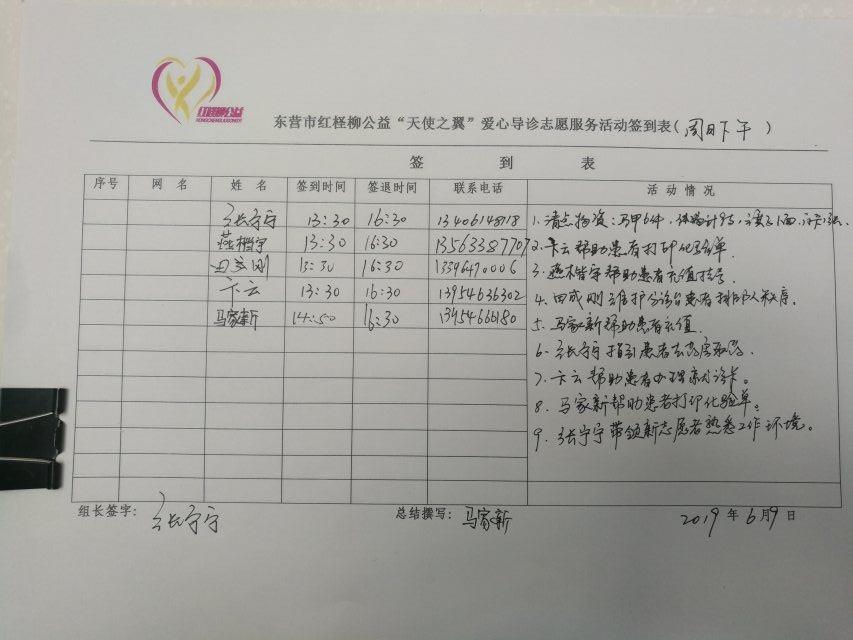 红柽柳公益
东营市红柽柳公益“天使之翼”爱心导诊志愿服务活动签到表(周日下午)
签到表
序号 网名 姓名 签到时间 签退时间 联系电话 活动情况
张宁宁 13:30 16:30 13406148118
燕楷宇 13:30 16:30 13563387707
田成刚 13:30 16:30 13396470006
卞云 13:30 16:30 13954636302
马家新 14:50 16:30 13954666180
1.清点物资:马甲6件,体温计9支
2.卞云帮助患者打印化验单.
3.燕楷宇帮助患者充值挂号.
4.田成刚维护分诊台患者排队秩序.
5.马家新帮助患者充值.
6.张宁宁指引患者去药房取药.
7.卞云帮助患者办理就诊卡。
8.马家新帮助患者打印化验单。
9.张宁宁带领新志愿者熟悉工作环境。
组长签字:张宁宁 总结撰写:马家新 2019年6月9日